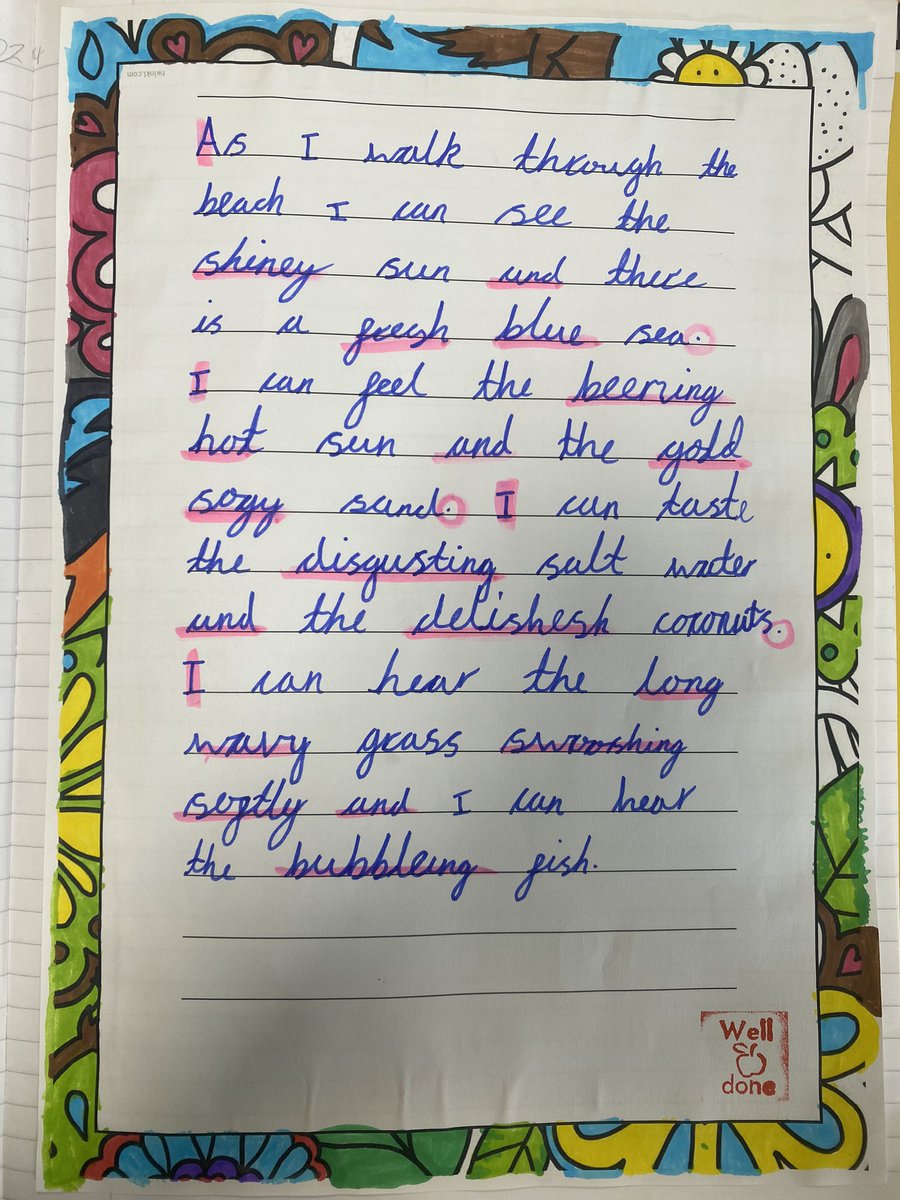 As I walk through the
beach I can see the
shiney sun and there
is a fresh blue sea.
I can feel the beeming
hot sun and the gold
sogy sand. I can taste
the disgusting salt water
and the delishesh coconuts.
I can hear the long
wavy grass swooshing
softly and I can hear
the bubbleing fish.
Well
done
twinkl.com